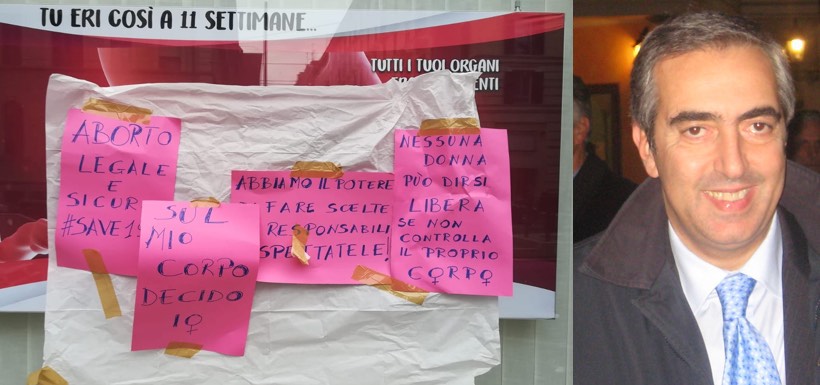 TU ERI COSÌ A 11 SETTIMANE...
TUTTI I TUOI ORGANI
ABORTO
LEGALE
E
SICUR
#SAVE19
SUL
MIO
CORPO
DECIDO
IO
ABBIAMO IL POTERE
DI FARE SCELTE
RESPONSABILI
NESSUNA
DONNA
PUÒ DIRSI
LIBERA
SE NON
CONTROLLA
IL PROPRIO
CORPO